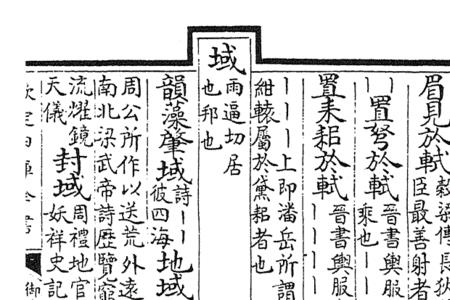 眉見於軾 穀梁傳長狄
臣最善射者
丨置弩於軾 晉書輿服
乘也丨丨
置耒耜於軾 晉書輿服
丨丨丨丨
丨丨丨丨上即潘岳所謂
紺轅屬於黛耜者也
域 雨逼切居
也邦也
韻藻肇域 詩丨丨
彼四海 地域
周公所作以送荒外遠
南北梁武帝詩歷覽
流耀鏡
天儀 封域 周禮地官
妖祥史記
欽定四庫全書 御